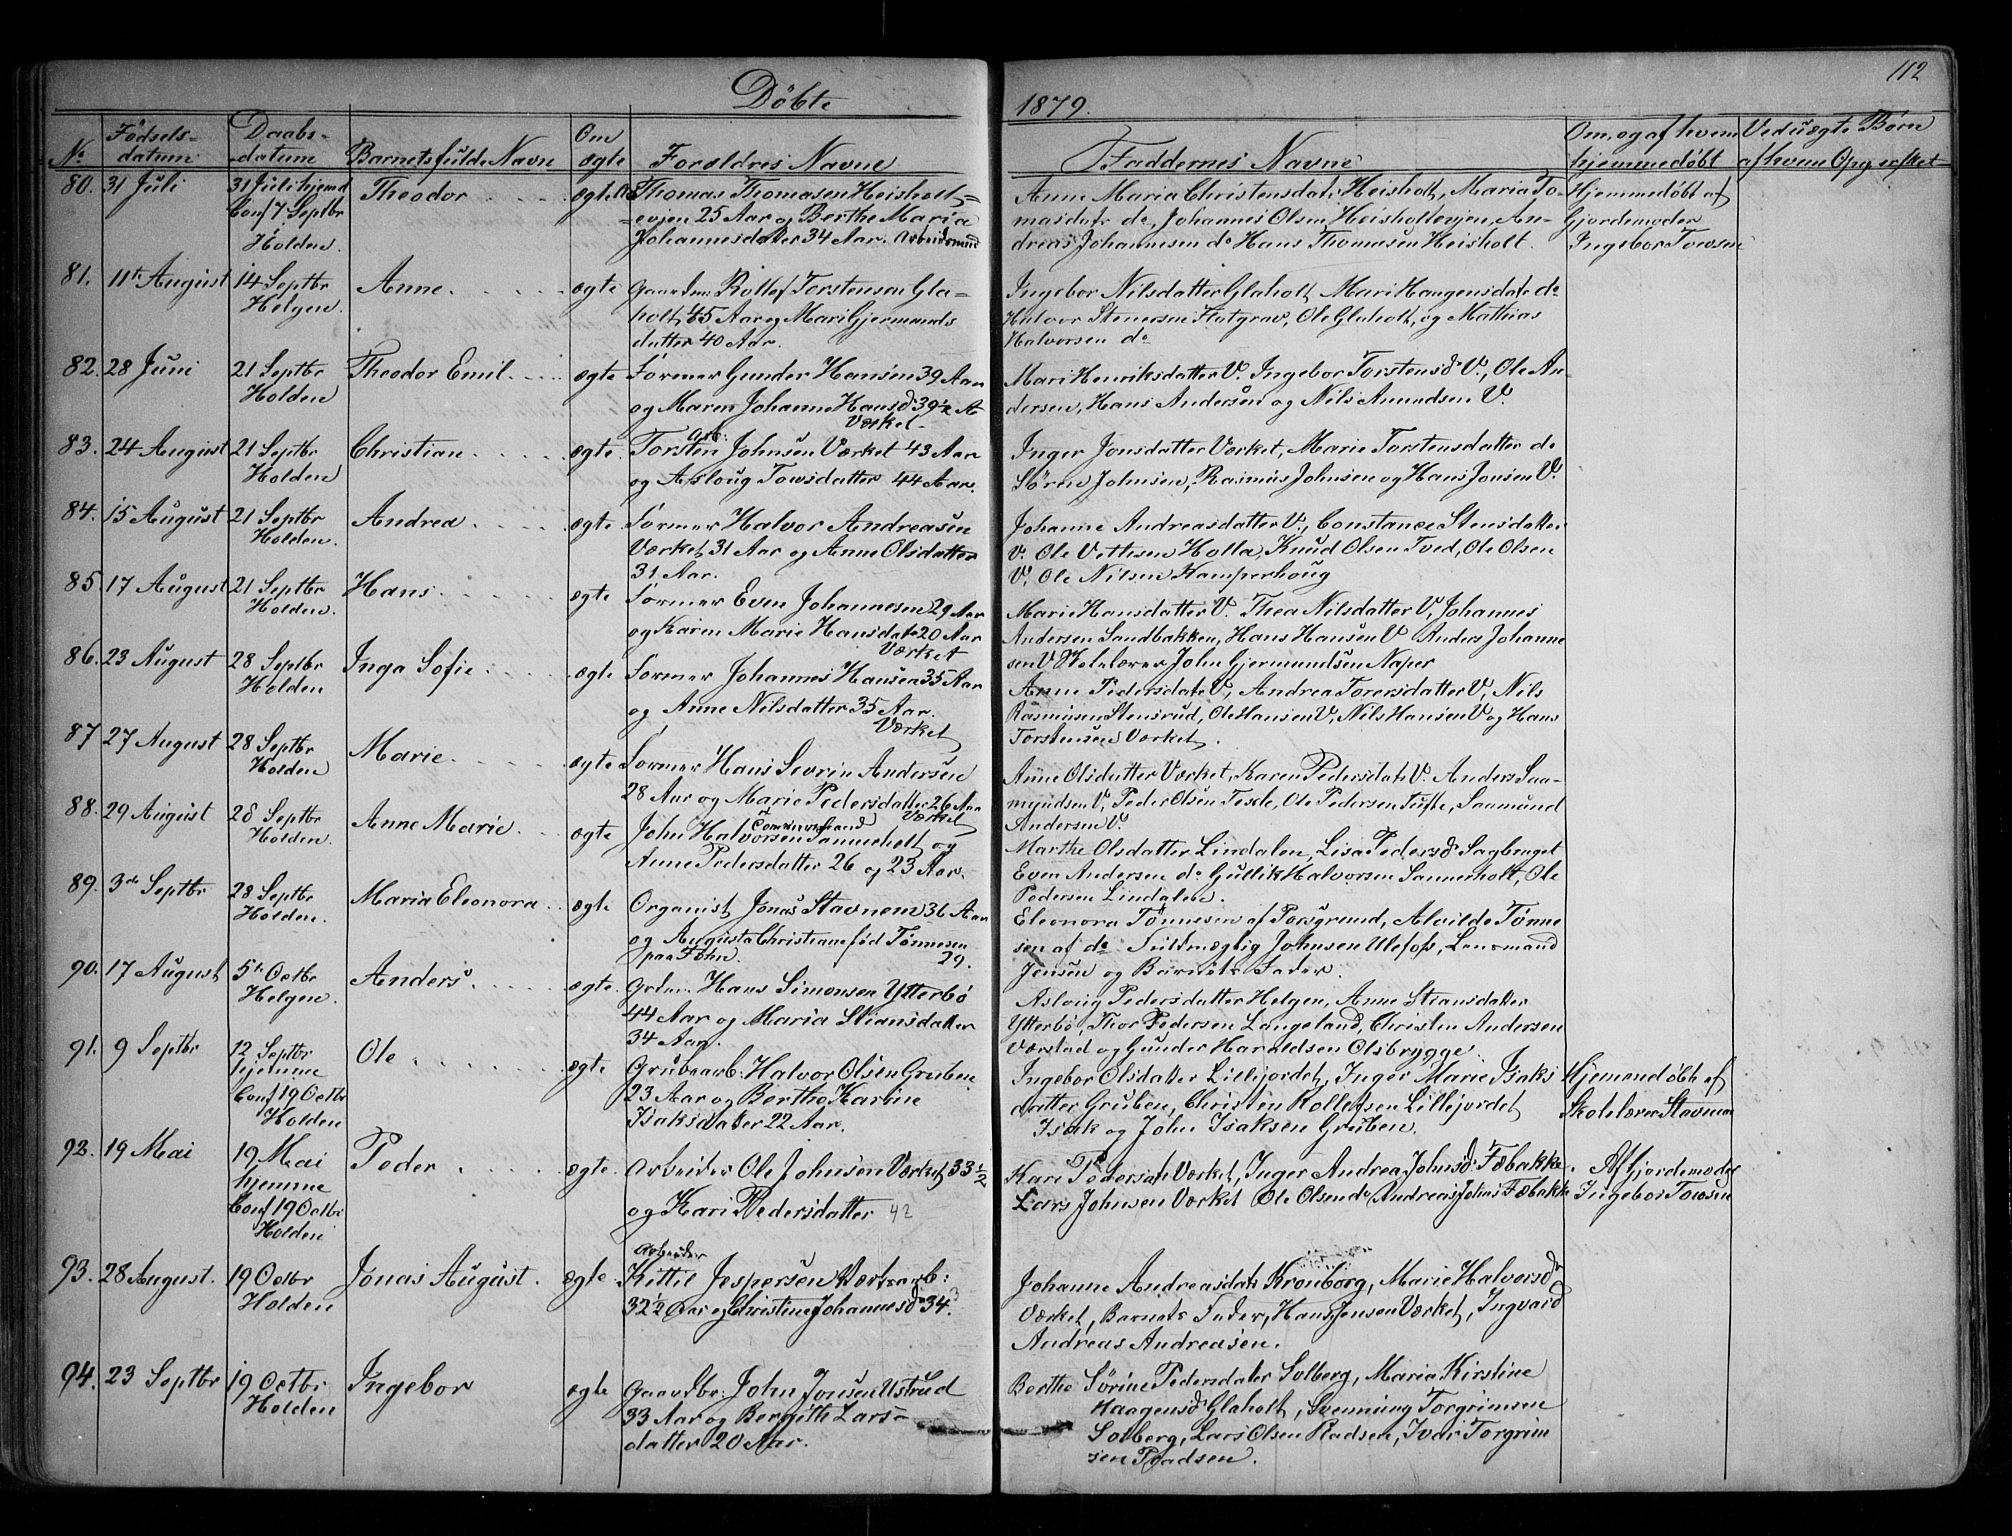 112
Døbte
1879.
No Fødsels-datum Daabs-datum Barnets fulde Navn Om ægte Forældres Navne
Faddernes Navne Om og af hvem hjemmedøbt Ved uægte Børn af hvem Opg. er sket
80. 31 Juli 31 Juli hjemd Conf 7 Septbr Holden. Theodor ægte
Thomas Thomasen Heisholt=
=evjen 25 Aar og Berthe Maria
Johannesdatter 34 Aar. Arbeidsmand
Anne Maria Christensdatr Heisholt, Maria To-
masdatr do, Johannes Olsen Heisholtevjen, An-
dreas Johannesen do Hans Thomasen Heisholt.
Hjemmedøbt af
Gjordemoder
Ingebor Towsen
81. 11te August 14 Septbr Helgen. Anne. ægte
Gaardm: Rollef Torstensen Gla=
holt, 45 Aar og Mari Gjermunds
datter 40 Aar.
Ingebor Nilsdatter Glaholt, Mari Haugensdatr do
Halvor Stenersen Flatgrav, Ole Glaholt, og Mathias
Halvorsen do
82. 28 Juni 21 Septbr Holden Theodor Emil. ægte
Formер Gunder Hansen 39 Aar
og Maren Johanne Hansdr 39½ A
Værket
Mari Henriksdatter V. Ingebor Torstensd V., Ole An-
dersen, Hans Andersen og Nils Amundsen V.
83. 24 August 21 Septbr Holden Christian. ægte.
Arb:
Torsten Johnsen Værket 43 Aar
og Asloug Towsdatter 44 Aar.
Inger Jonsdatter Værket, Marie Torstensdatter do
Søren Johnsen, Rasmus Johnsen og Hans Jonsen V.
84. 15 August 21 Septbr Holden. Andrea. ægte
Formер Halvor Andreasen
Værket 31 Aar og Anne Olsdatter
31 Aar.
Johanne Andreasdatter V., Constance Stensdatter
V. Ole Vettesen Holla, Knud Olsen Tved, Ole Olsen
V. Ole Nilsen Kamperhoug
85. 17 August 21 Septbr Holden. Hans. ægte
Former Even Johannesen 29 Aar
og Karen Marie Hansdatr 20 Aar
Værket
Marie Hansdatter V. Thea Nilsdatter V, Johannes
Andersen Sandbakken, Hans Hansen V Anders Johanne
sen V Skolelærer John Gjermundsen Naper
86. 23 August 28 Septbr Holden Inga Sofie. ægte
Former Johannes Hansen 35 Aar
og Anne Nilsdatter 35 Aar.
Værket
Anne Pedersdatr V, Andrea Torersdatter V, Nils
Rasmusen Stensrud, Ole Hansen V, Nils Hansen V og Hans
Torstensen Værket.
87 27 August 28 Septbr Holden Marie. ægte
Former Hans Sevrin Andersen
28 Aar og Marie Pedersdatter 26 Aar
Værket
Anne Olsdatter Værket, Karen Pedersdatr V. Anders Saa-
mundsen V, Peder Olsen Teste, Ole Pedersen Tufte, Saamund
Andersen V.
88. 29 August 28 Septbr Holden. Anne Marie. ægte
Tømmermand
John Halvorsen Sannerholt og
Anne Pedersdatter 26 og 23 Aar.
Marthe Olsdatter Lindalen, Lisa Pedersd Sagbruget
Even Andersen do Gullik Halvorsen Sannerholt, Ole
Pedersen Lindalen.
89. 3de Septbr 28 Septbr Holden. Maria Eleonora. ægte
Organist Jonas Stavnem 36 Aar
og Augusta Christiane fød Tønnesen
paa Føhn. 29.
Eleonora Tønnesen af Porsgrund, Alvilde Tønne
sen af do Fuldmægtig Johnsen Ulefoss, Lensmand
Jensen og Barnets Fader.
90. 17 August 5te Octbr Helgen. Anders. ægte.
Grdm. Hans Simonsen Ytterbø
44 Aar og Maria Stiansdatter
34 Aar.
Asloug Pedersdatter Helgen, Anne Stiansdatter
Ytterbø, Thor Pedersen Langeland, Christen Andersen
Værstad og Gunder Haraldsen Olsbrygge
91. 9 Septbr 12 Septbr hjemme Conf 19 Octbr Holden Ole ægte
Grubearb: Halvor Olsen Gruben
23 Aar og Berthe Karine
Isaksdatter 22 Aar.
Ingebor Olsdatter Lillejordet, Inger Marie Isaks
datter Gruben, Christen Rollefsen Lillejordet
Isak og John Isaksen Gruben.
Hjemmedøbt af
Skolelærer Stavnem
92. 19 Mai 19 Mai hjemme Conf 19 Octbr Holden Peder ægte.
Arbeider Ole Johnsen Værket 33½
og Kari Pedersdatter 42
Kari Pedersdatr Værket, Inger Andrea Johnsd: Fæbakke.
Lars Johnsen Værket Ole Olsen do Andreas Johns: Fæbakke
Af Gjordemoder
Ingebor Towsen
93. 28 August. 19 Octbr Holden Jonas August. ægte
Arbeider
Kittil Jespersen Værksarb:
32½ Aar og Christine Johannesd 34.
Johanne Andreasdatr Kronborg, Marie Halvorsdr
Værket, Barnets Fader, Hans Jensen Værket, Ingvard
Andreas Andreasen.
94. 23 Septbr 19 Octbr Holden Ingebor ægte
Gaardbr: John Jonsen Ustrud
33 Aar og Bergith Lars-
datter 20 Aar.
Berthe Sørine Pedersdater Solberg, Maria Kirstine
Haagensd Glaholt, Svenning Torgrimsen
Solberg, Lars Olsen Radsen, Ivar Torgrim
sen Raadsen.